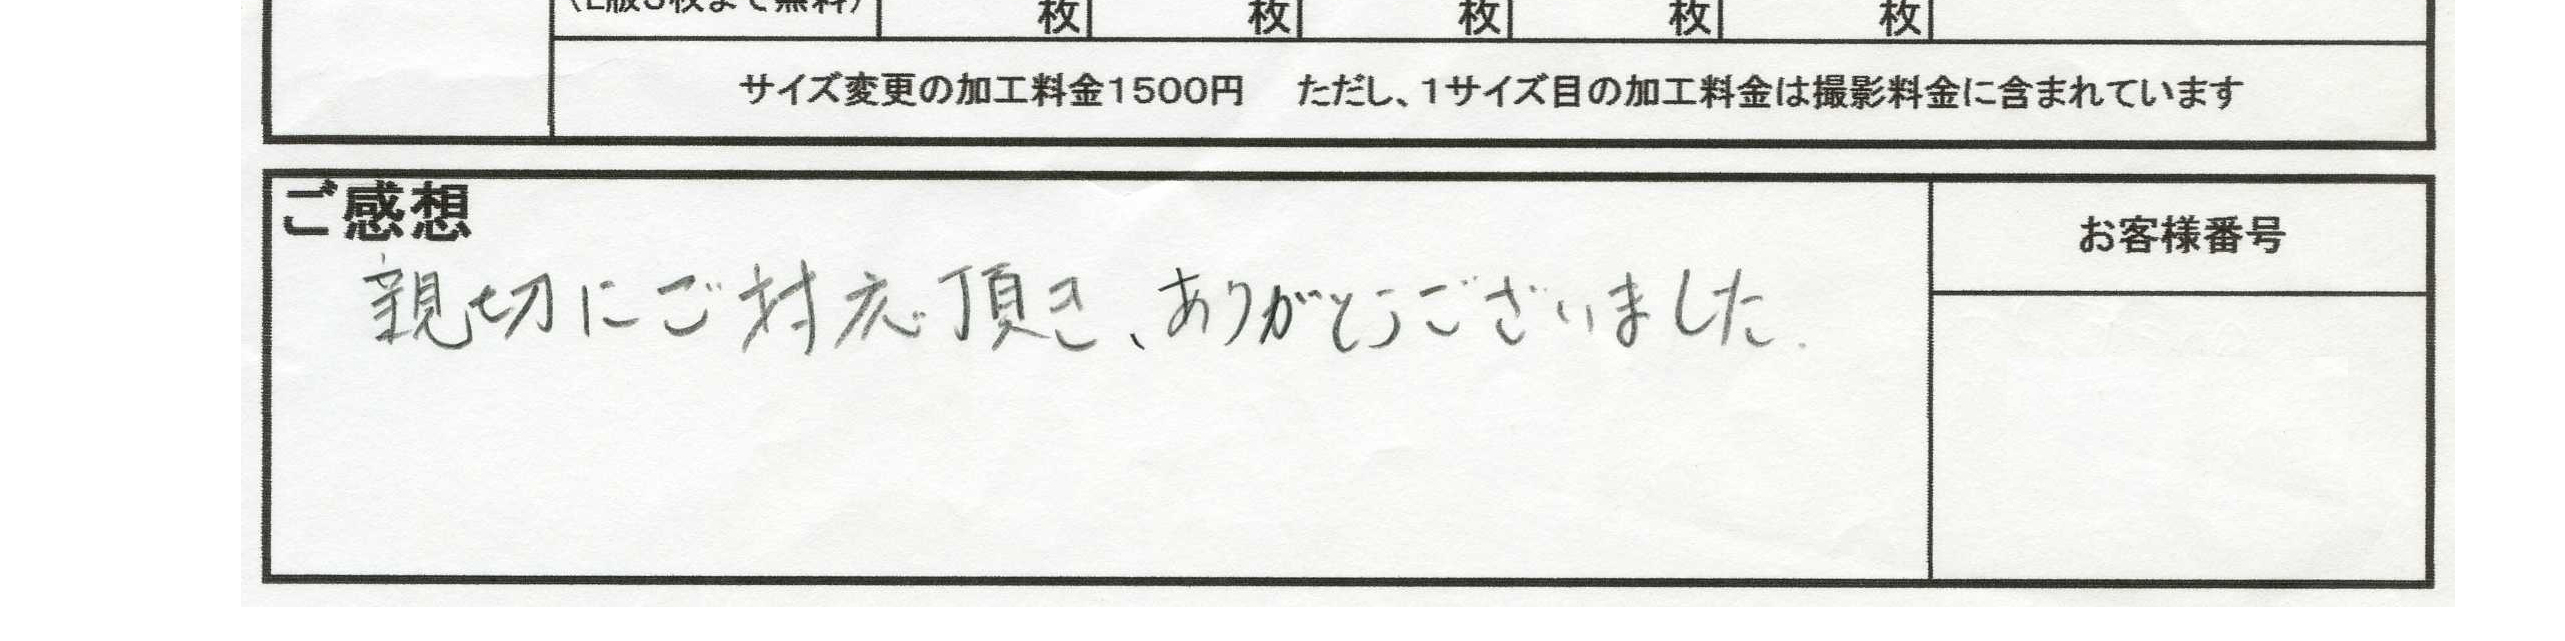 枚 枚 枚 枚 枚
サイズ変更の加工料金1500円　ただし、1サイズ目の加工料金は撮影料金に含まれています
ご感想
お客様番号
親切にご対応頂き、ありがとうございました.